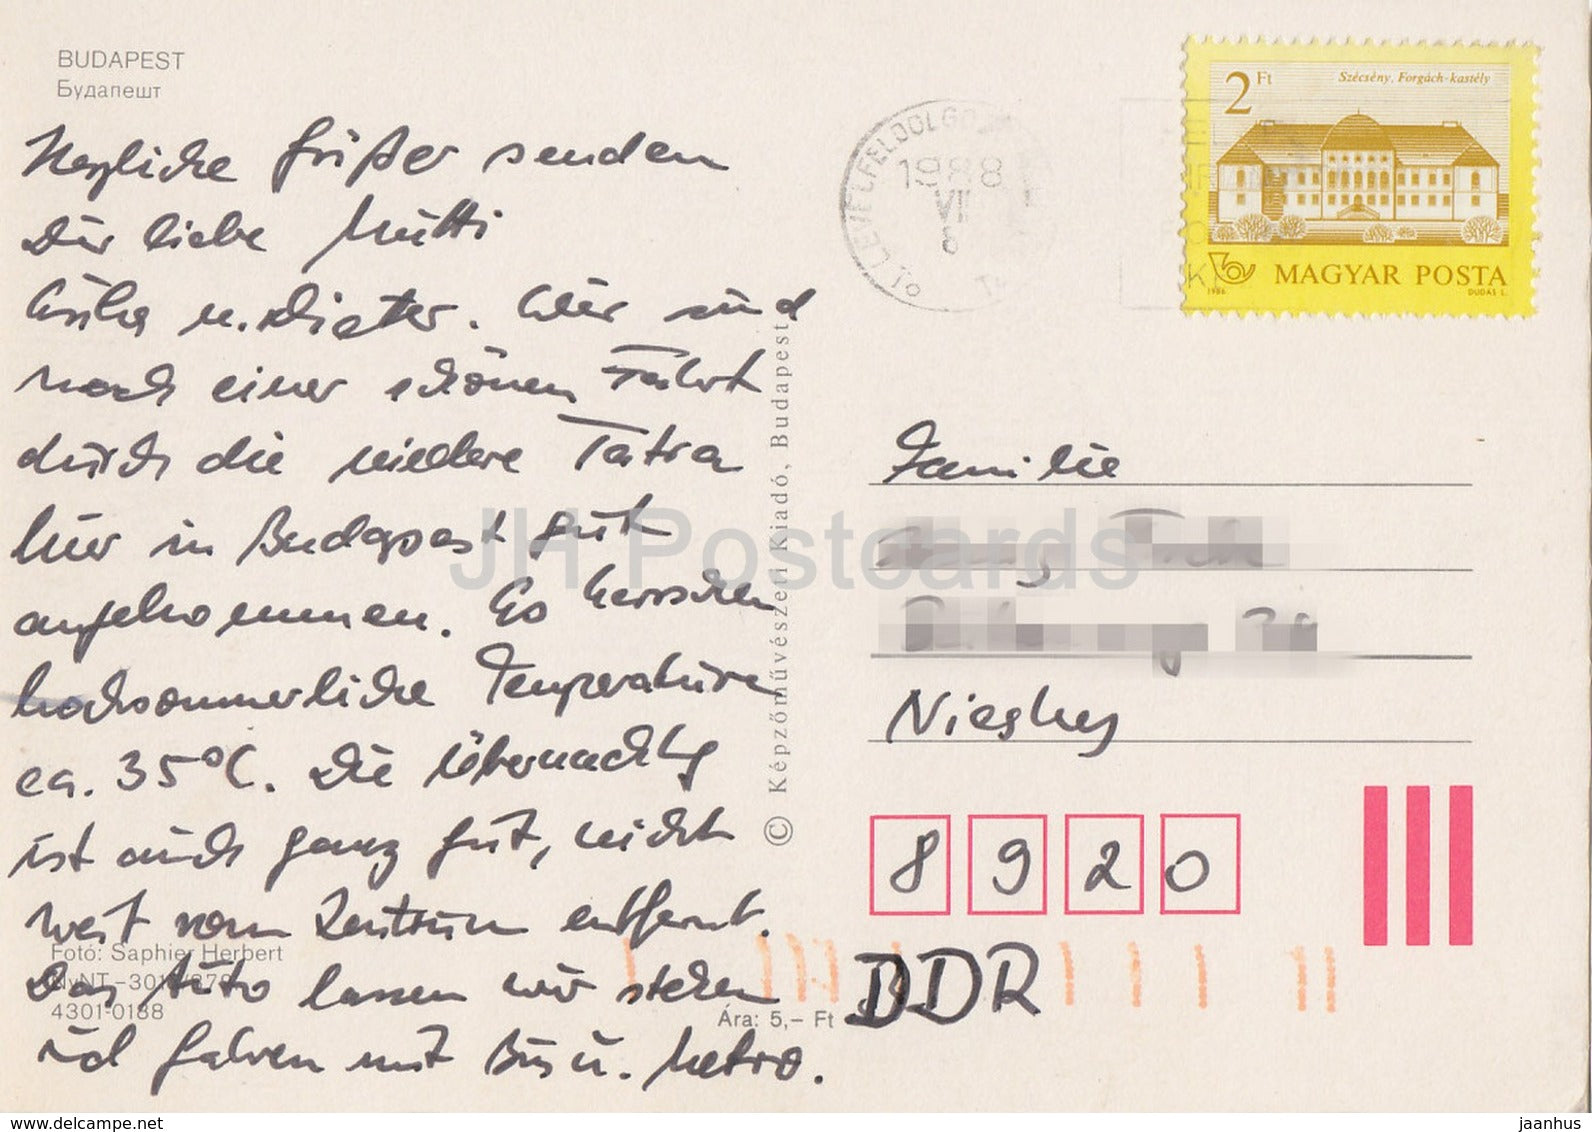 BUDAPEST
Будапешт
Herzliche Grüße senden
Dir liebe Mutti
u. Dieter. Wir sind
nach einer schönen Fahrt
durch die niedere Tatra
hier in Budapest gut
angekommen. Es herrschen
hochsommerliche Temperaturen
ca. 35°C. Die Übernachtg
ist auch ganz gut, nicht
weit vom Zentrum entfernt.
Das Auto lassen wir stehen
und fahren mit Bus u. Metro.
Fotó: Saphier Herbert
4301-0188
Ára: 5,– Ft
© Képzőművészeti Kiadó, Budapest
LEVÉLFELDOLGOZÓ
1988
VII
2 Ft
Szécsény, Forgách-kastély
MAGYAR POSTA
1986
DUDÁS L.
Familie
Niesky
8920
DDR
JH Postcards
www.delcampe.net
jaanhus